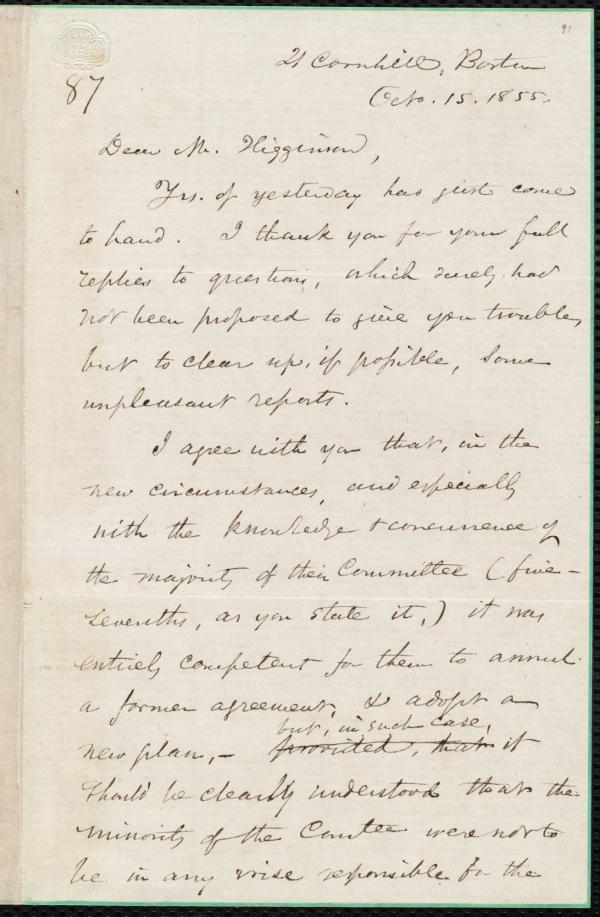 91
21 Cornhill, Boston
Octo. 15. 1855.
87
Dear Mr. Higginson,
Yrs. of yesterday has just come
to hand. I thank you for your full
replies to questions, which surely had
not been proposed to give you trouble,
but to clear up, if possible, some
unpleasant reports.
I agree with you that, in the
new circumstances, and especially
with the knowledge & concurrence of
the majority of their Committee (five-
sevenths, as you state it,) it was
entirely competent for them to annul
a former agreement, & adopt a
but, in such case,
new plan, – provided, that it
should be clearly understood that the
minority of the Comtee were not to
be in any wise responsible for the